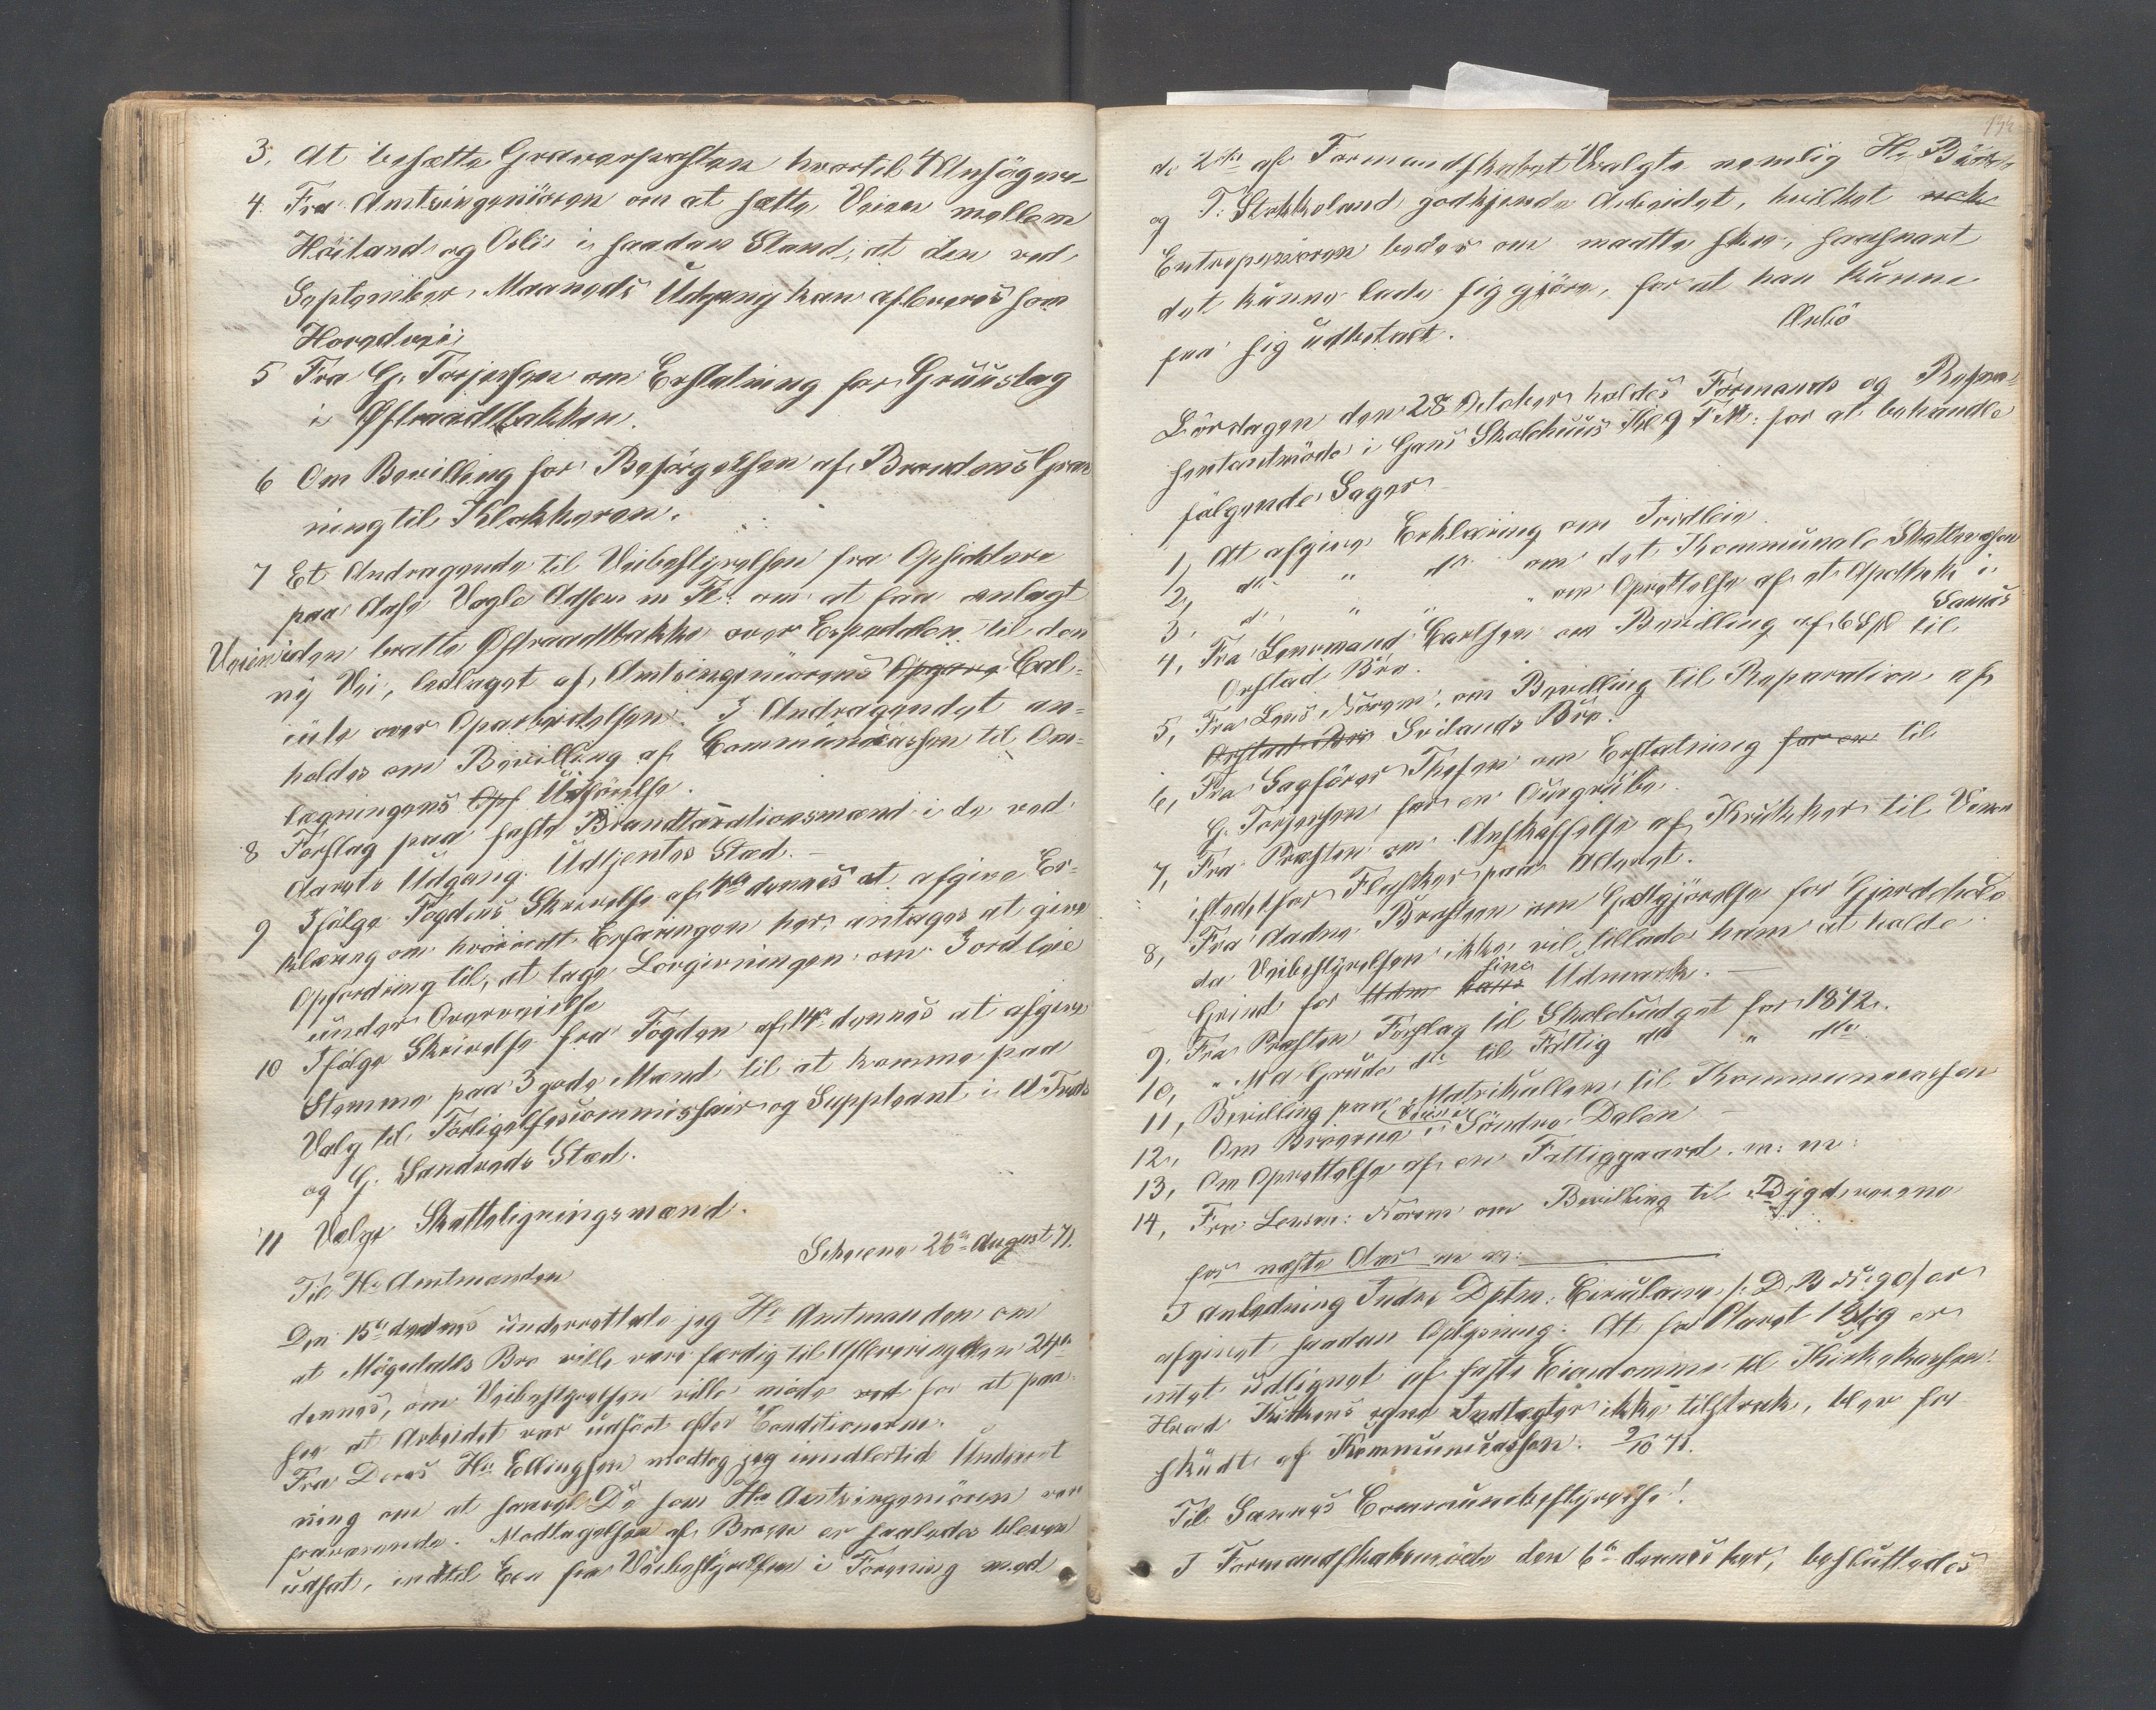 3. At besætte Graverposten hvortil 4 Ansögere
4. Fra Amtsingeniören om at sætte Veien mellem
Höiland og Oslie i saadan Stand, at den ved
September Maaneds Udgang kan afleveres som
Hovedvei;
5 Fra G. Torjersen om Erstatning for Gruustag
i Østraadtbakken.
6 Om Bevilling for Besörgelsen af Brevdens
ning til Klokkeren.
7 Et Andragende til Veibestyrelsen fra Opsiddere
paa Aase Vagle Adsen m Fl: om at faa anlagt
Veien i den bratte Østraadtbakke over Espedalen til den
ny Vei, ledsaget af Amtsingeniörens Opgave Cal-
cule over Oparbeidelsen. I Andragendet an-
holdes om Bevilling af Communecassen til Om-
lægningens Opf Udförelse.
8 Forslag paa faste Brandtaxationsmænd i de ved
Aarets Udgang Udtjentes Sted. -
9 Ifölge Fogdens Skrivelse af 4de dennes at afgive Er-
klæring om hvorvidt Erfaringen her antages at give
Opfordring til, at tage Lovgivningen om Jordleie
under Overveielse
10 Ifölge Skrivelse fra Fogden af 14de dennes at afgive
Stemme paa 3 gode Mænd til at komme paa
Valg til Forligelsescommissair og Suppleant i A. Træds
og G. Sandveds Sted.
11 Vælge Skatteligningsmænd.
26de August 71.
Til Hr Amtmanden
Den 15de dennes underrettede jeg Hr Amtmanden om
at Mögedals Bro ville være færdig til Aflevering den 24de
dennes, om Veibestyrelsen ville möde ved for at paa-
see at Arbeidet var udfört efter Conditionerne.
Fra Deres Hr Ellingsen modtog jeg imidlertid Underret
ning om at saavel De som Hr Amtsingeniören var
fraværende. Modtagelsen af Broen er saaledes bleven
udsat, indtil Een fra Veibestyrelsen i Forening med
de 2de af Formandskabet Valgte nemlig Hr.
og T. Stokkeland godkjende Arbeidet, hvilket nok
Entrepenören beder om maatte skee, saasnart
det kunne lade sig gjöre, for at han kunne
faa sig udbetalt.
Asbö
Lördagen den 28 October holdes Formands og Repræ-
sentantmöde i Gans Skolehuus Kl 9 F M: for at behandle
fölgende Sager
1, At afgive Erklæring om Jordleie
2, do " do om det Kommunale Skattevæsen
3, d. " " " om Oprettelse af et Apothek i
Sannæs
4, Fra Lensmand Carlsen om Bevilling af 6 Spd til
Orstad Bro.
5, Fra Lens Norem, om Bevilling til Reparation af
Orstad Bro Svilands Bro.
6, Fra Sagförer Thesen om Erstatning for en til
G. Torjersen for en Auurgrube.
7, Fra Præsten om Anskaffelse af Krukker til Vinen
istedetfor Flasker paa Alteret.
8, Fra Aadne Braasteen om Godtgjörelse for Gjerdehold
da Veibestyrelsen ikke vil tillade ham at holde
Grind for Udm hans sine Udmark. -
9, Fra Præsten Forslag til Skolebudget for 1872.
10, " M A Grude do til Fattig do " do
11, Bevilling paa Matrikullen til Kommunecassen
12, Om Broerne i Söndre Dalen -
13, Om Oprettelse af en Fattiggaard m: m:
14, Fra Lensm: Norem om Bevilling til Bygdeveiene
for næste Aar m m:
I anledning Indre Dptm: Circulaire er
afgivet saadan Oplysning: At for Aaret er
intet udlignet af faste Eiendomme til Kirkekassen.
Hvad Kirkens egne Indtægter ikke tilstrak, blev for
skudt af Kommunecassen. 9/10 71.
Til Sannæs Communebestyrelse!
I Formandskabsmöde den 6te dennes her, besluttedes